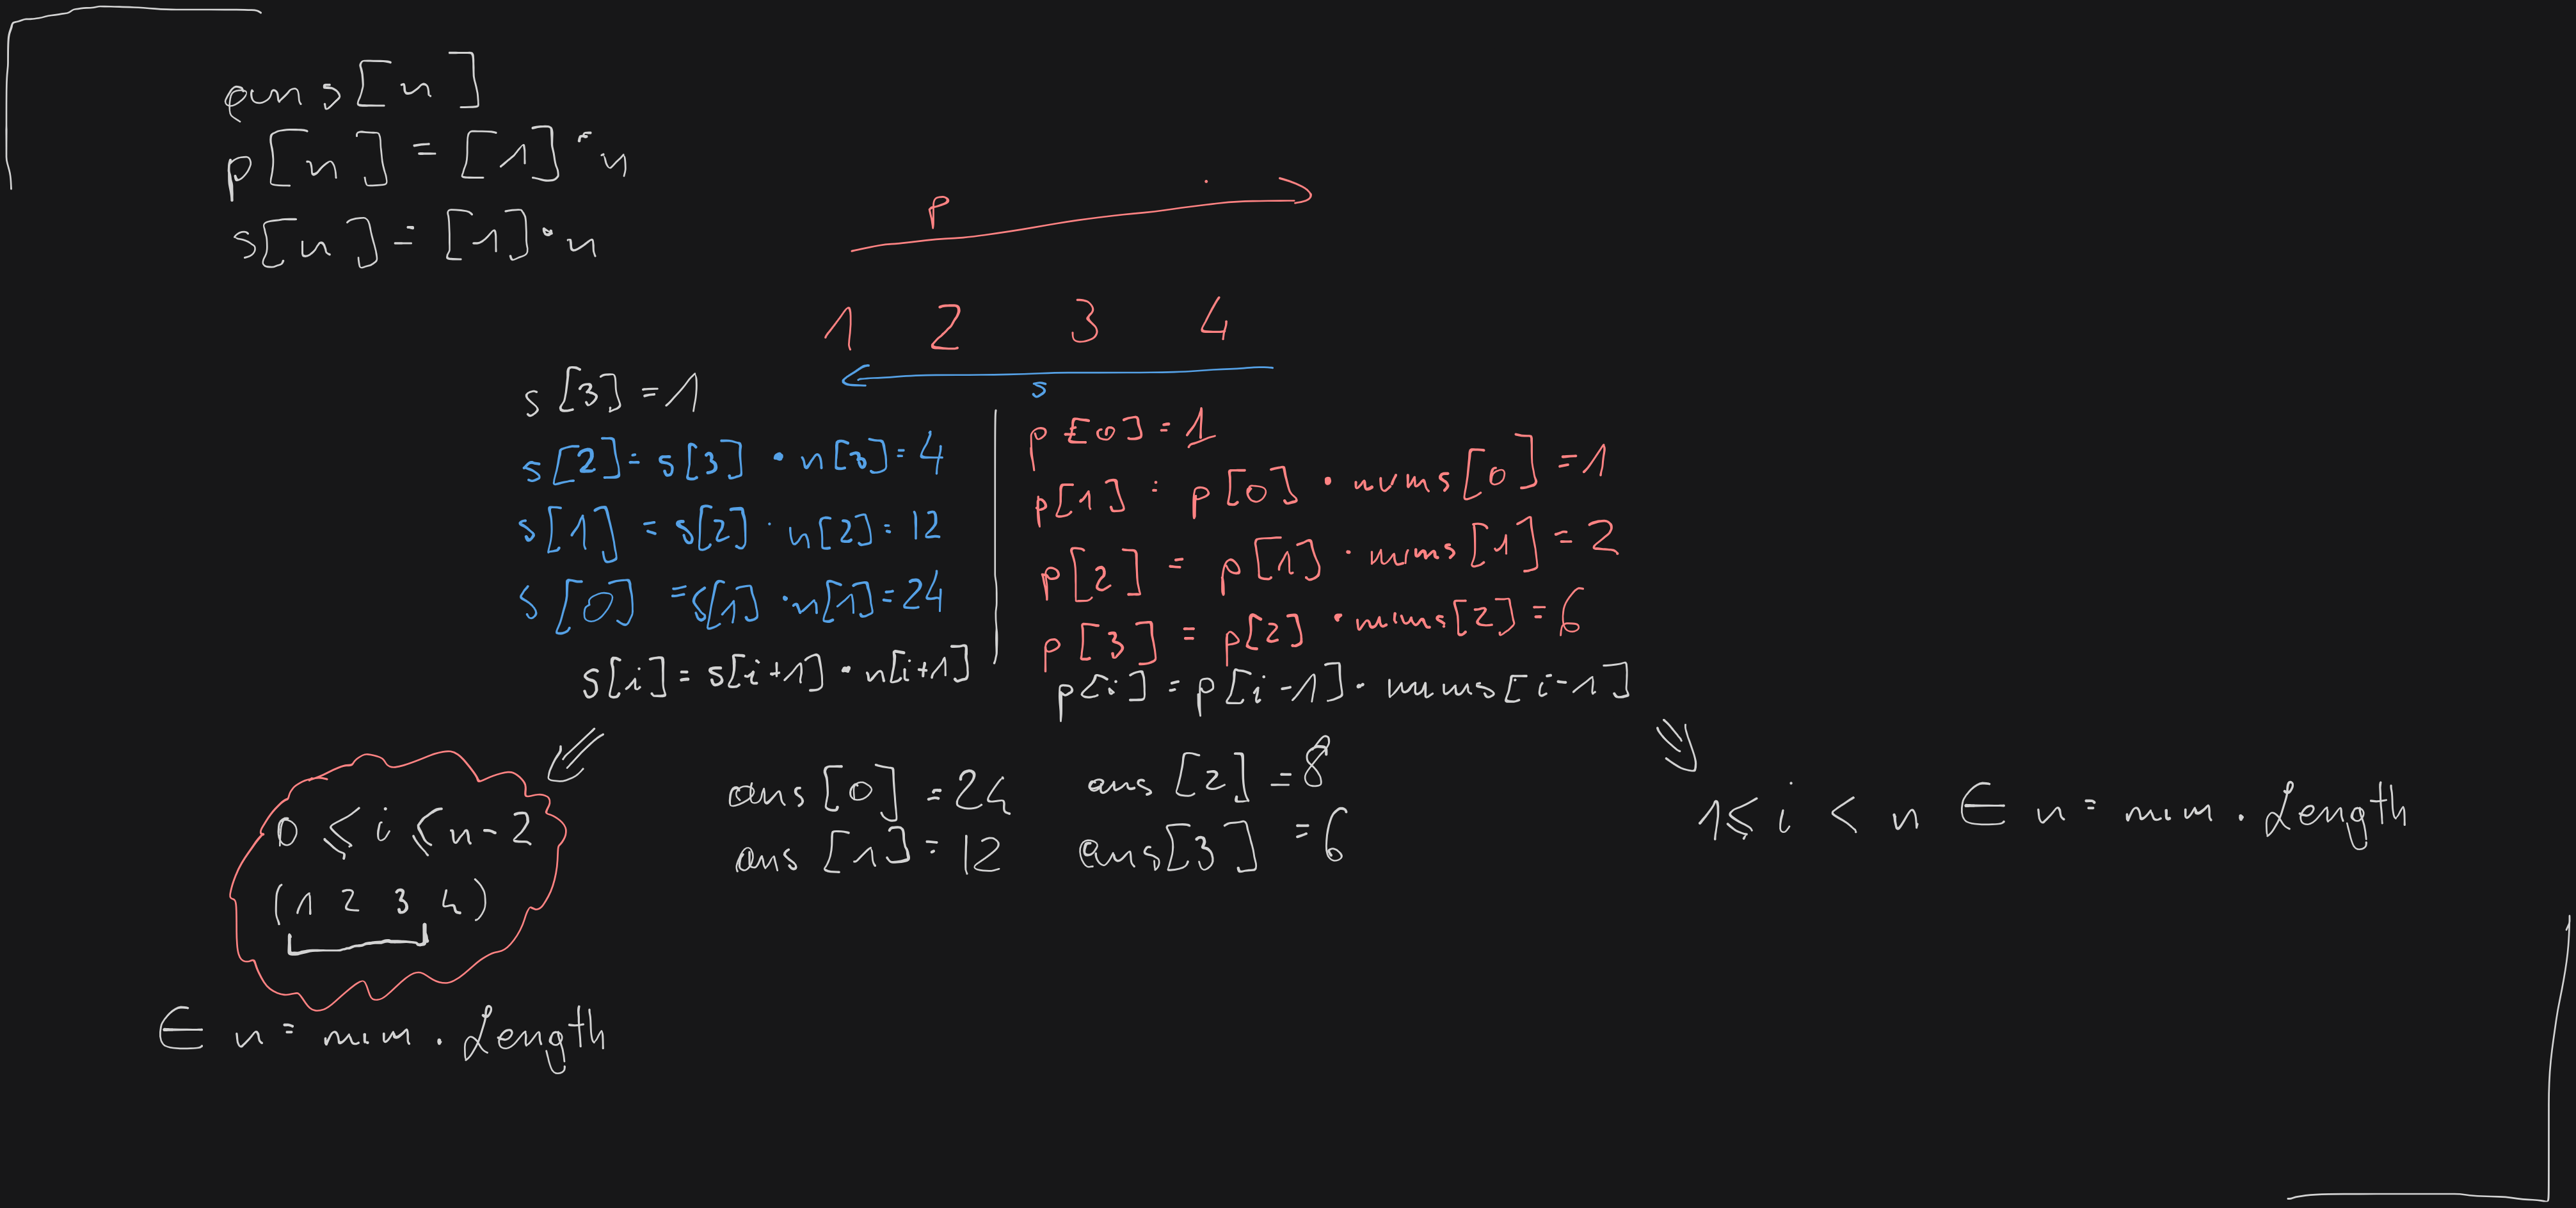 ans[n]
p[n] = [1]·n
s[n] = [1]·n
p
1 2 3 4
s
s[3] = 1
s[2] = s[3] · n[3] = 4
s[1] = s[2] · n[2] = 12
s[0] = s[1] · n[1] = 24
s[i] = s[i+1] · n[i+1]
p[0] = 1
p[1] = p[0] · nums[0] = 1
p[2] = p[1] · nums[1] = 2
p[3] = p[2] · nums[2] = 6
p[i] = p[i-1] · nums[i-1]
0 ≤ i ≤ n-2
(1 2 3 4)
∈ n = num.Length
ans[0] = 24 ans[2] = 8
ans[1] = 12 ans[3] = 6
1 ≤ i < n ∈ n = num.Length